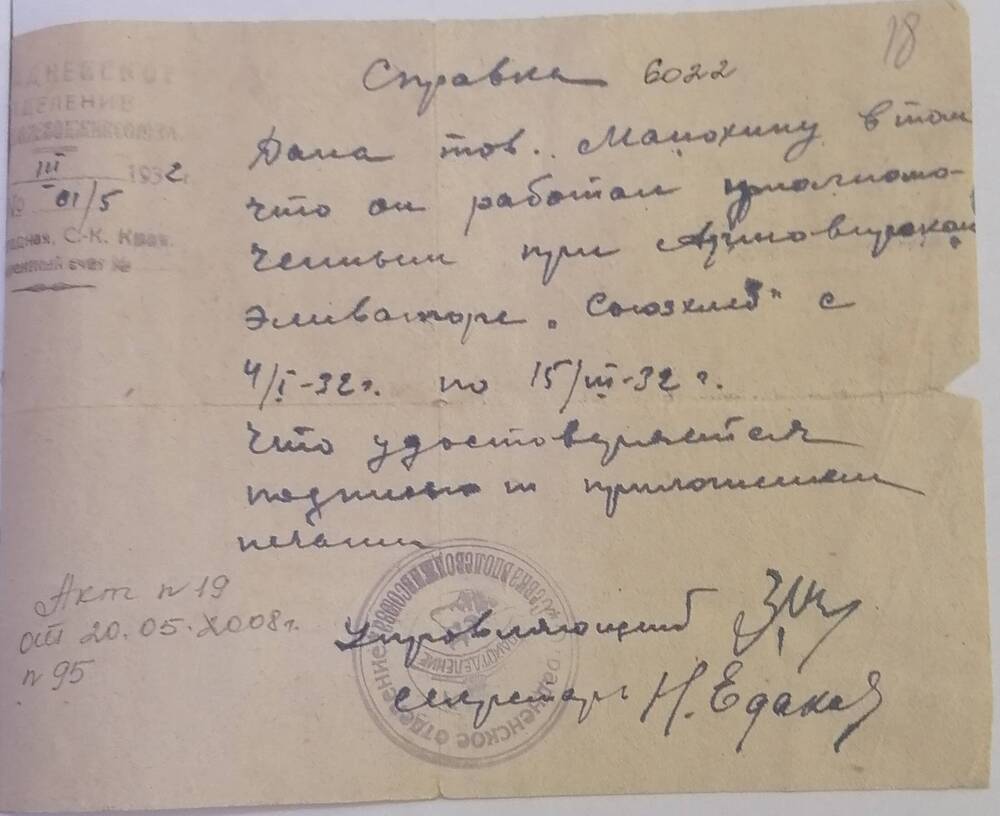 18
Справка 6022
ДНЕВСКОЕ
ДЕЛЕНИЕ
III 1932 г.
№ 01/5
дная, С.-К. Края.
счет №
Дана тов. Манохину в том
что он работал уполномо-
ченным при
Эливаторе „Союзхлеб" с
4/I-32 г. по 15/III-32 г.
что удостоверяется
подписью и приложением
печати
Акт п 19
от 20.05.2008г.
п 95
Управляющий
Секретарь Н. Едака
ОТДЕЛЕНИЕ